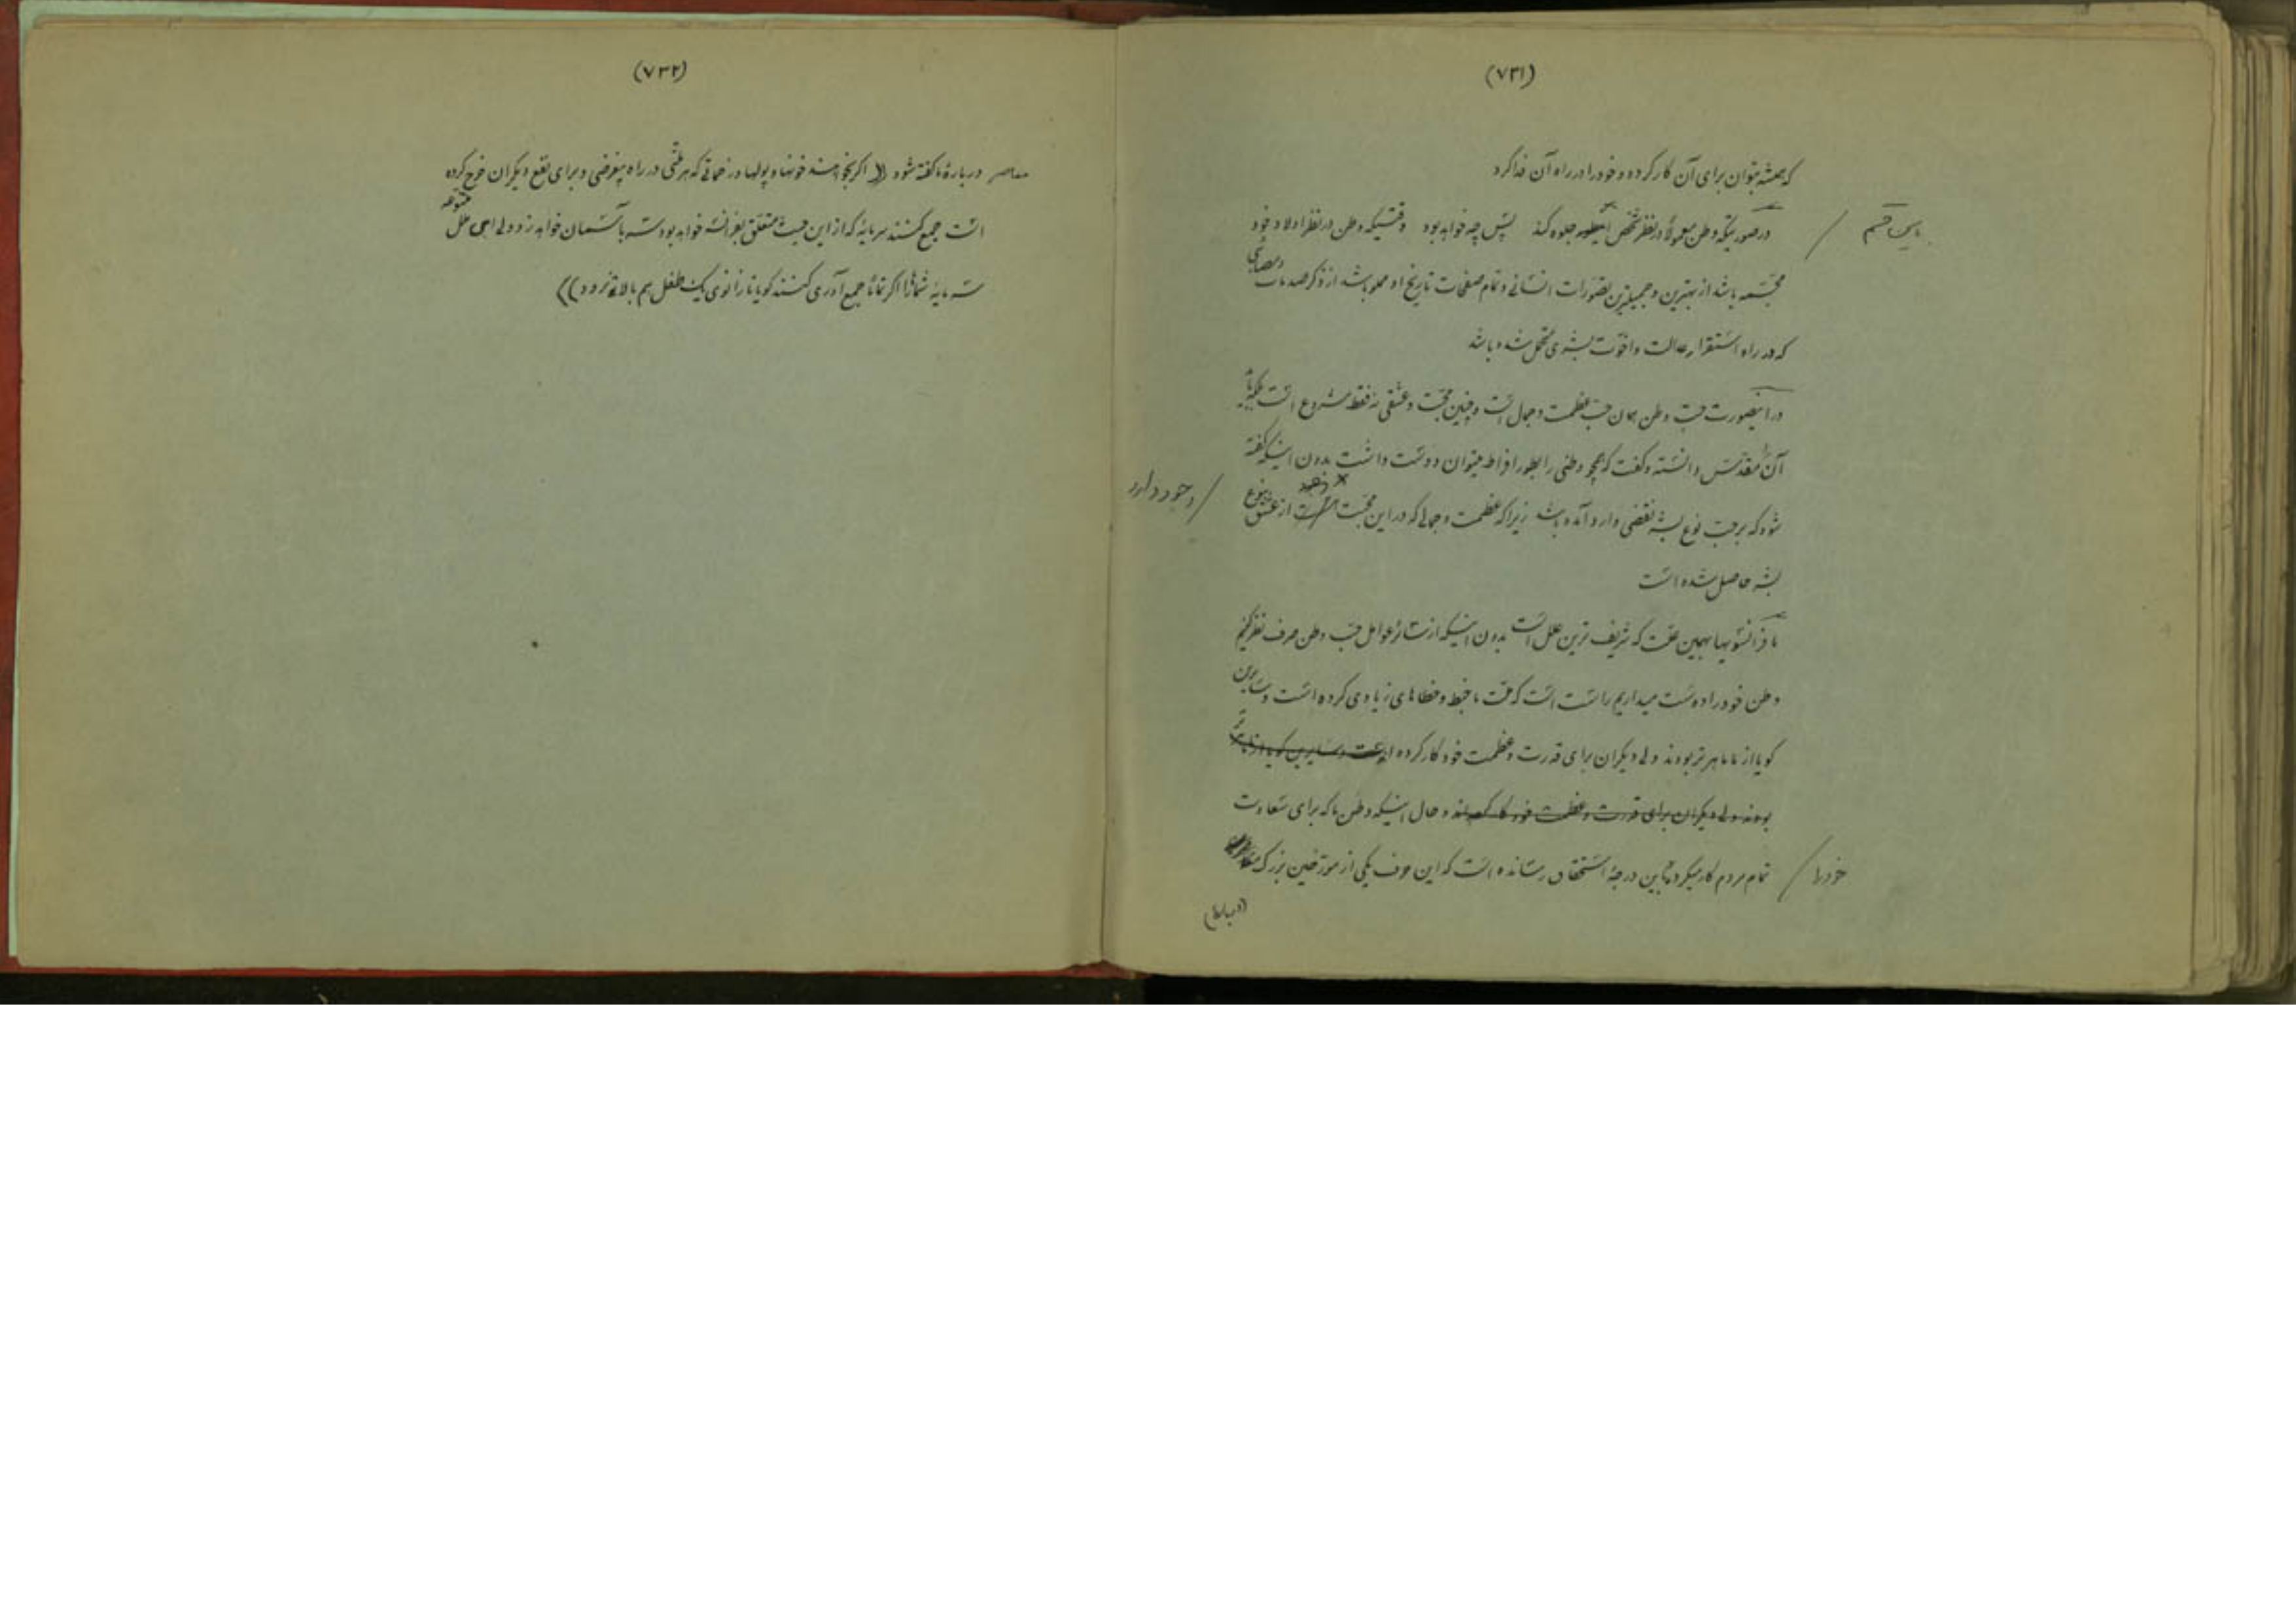 (۷۳۱)
که همیشه بتوان برای آن کار کرده و خود را در راه آن فدا کرد
در صورتیکه وطن معمولاً در نظر شخص اینطور جلوه کند پس چه خواهد بود وقتیکه وطن در نظر اولاد خود
باین قسم
مجسمه باشد از بهترین و جمیلترین تصورات انسانی و تمام صفحات تاریخ او مملو باشد از ذکر صدمات و مصائبی
که در راه استقرار عدالت و اخوت بشری متحمل شده باشد
در اینصورت حب وطن همان حب عظمت و جمال است و چنین محبت و عشقی نه فقط مشروع است بلکه باید
آنرا مقدس دانسته و گفت که همچو وطنی را بطور افراط میتوان دوست داشت بدون اینکه گفته
شود که بر حب نوع بشر نقضی وارد آمده باشد زیرا که عظمت و جمالی که در این محبت است از عشق بنوع
وجود دارد
بشر حاصل شده است
ما فرانسویها بهمین علت که شریف ترین علل است بدون اینکه از سائر عوامل حب وطن صرف نظر کنیم
وطن خود را دوست میداریم راست است که ملت ما خبط و خطاهای زیادی کرده است و سایرین
گویا از ما ماهر تر بودند ولی دیگران برای قدرت و عظمت خود کار کرده اند است و سایرین گویا از ما ماهر تر
بودند ولی دیگران برای قدرت و عظمت خود کار کرده اند و حال اینکه وطن ما که برای سعادت
تمام مردم کار میکرد باین درجهٔ استحقاق رسانده است که این حرف یکی از مورخین بزرگ
خود را
(دربارهٔ)
(۷۳۲)
معاصر دربارهٔ ما گفته شود (( اگر بخواهند خونها و پولها و زحماتی که هر ملتی در راه بیغرضی و برای نفع دیگران خرج کرده
است جمع کنند سرمایهٔ که از این حیث متعلق بفرانسه خواهد بود سر بآسمان خواهد زد ولی ای ملل متنوعه
سرمایهٔ شماها را اگر تماماً جمع آوری کنند گویا تا زانوی یک طفل هم بالا نرود ))